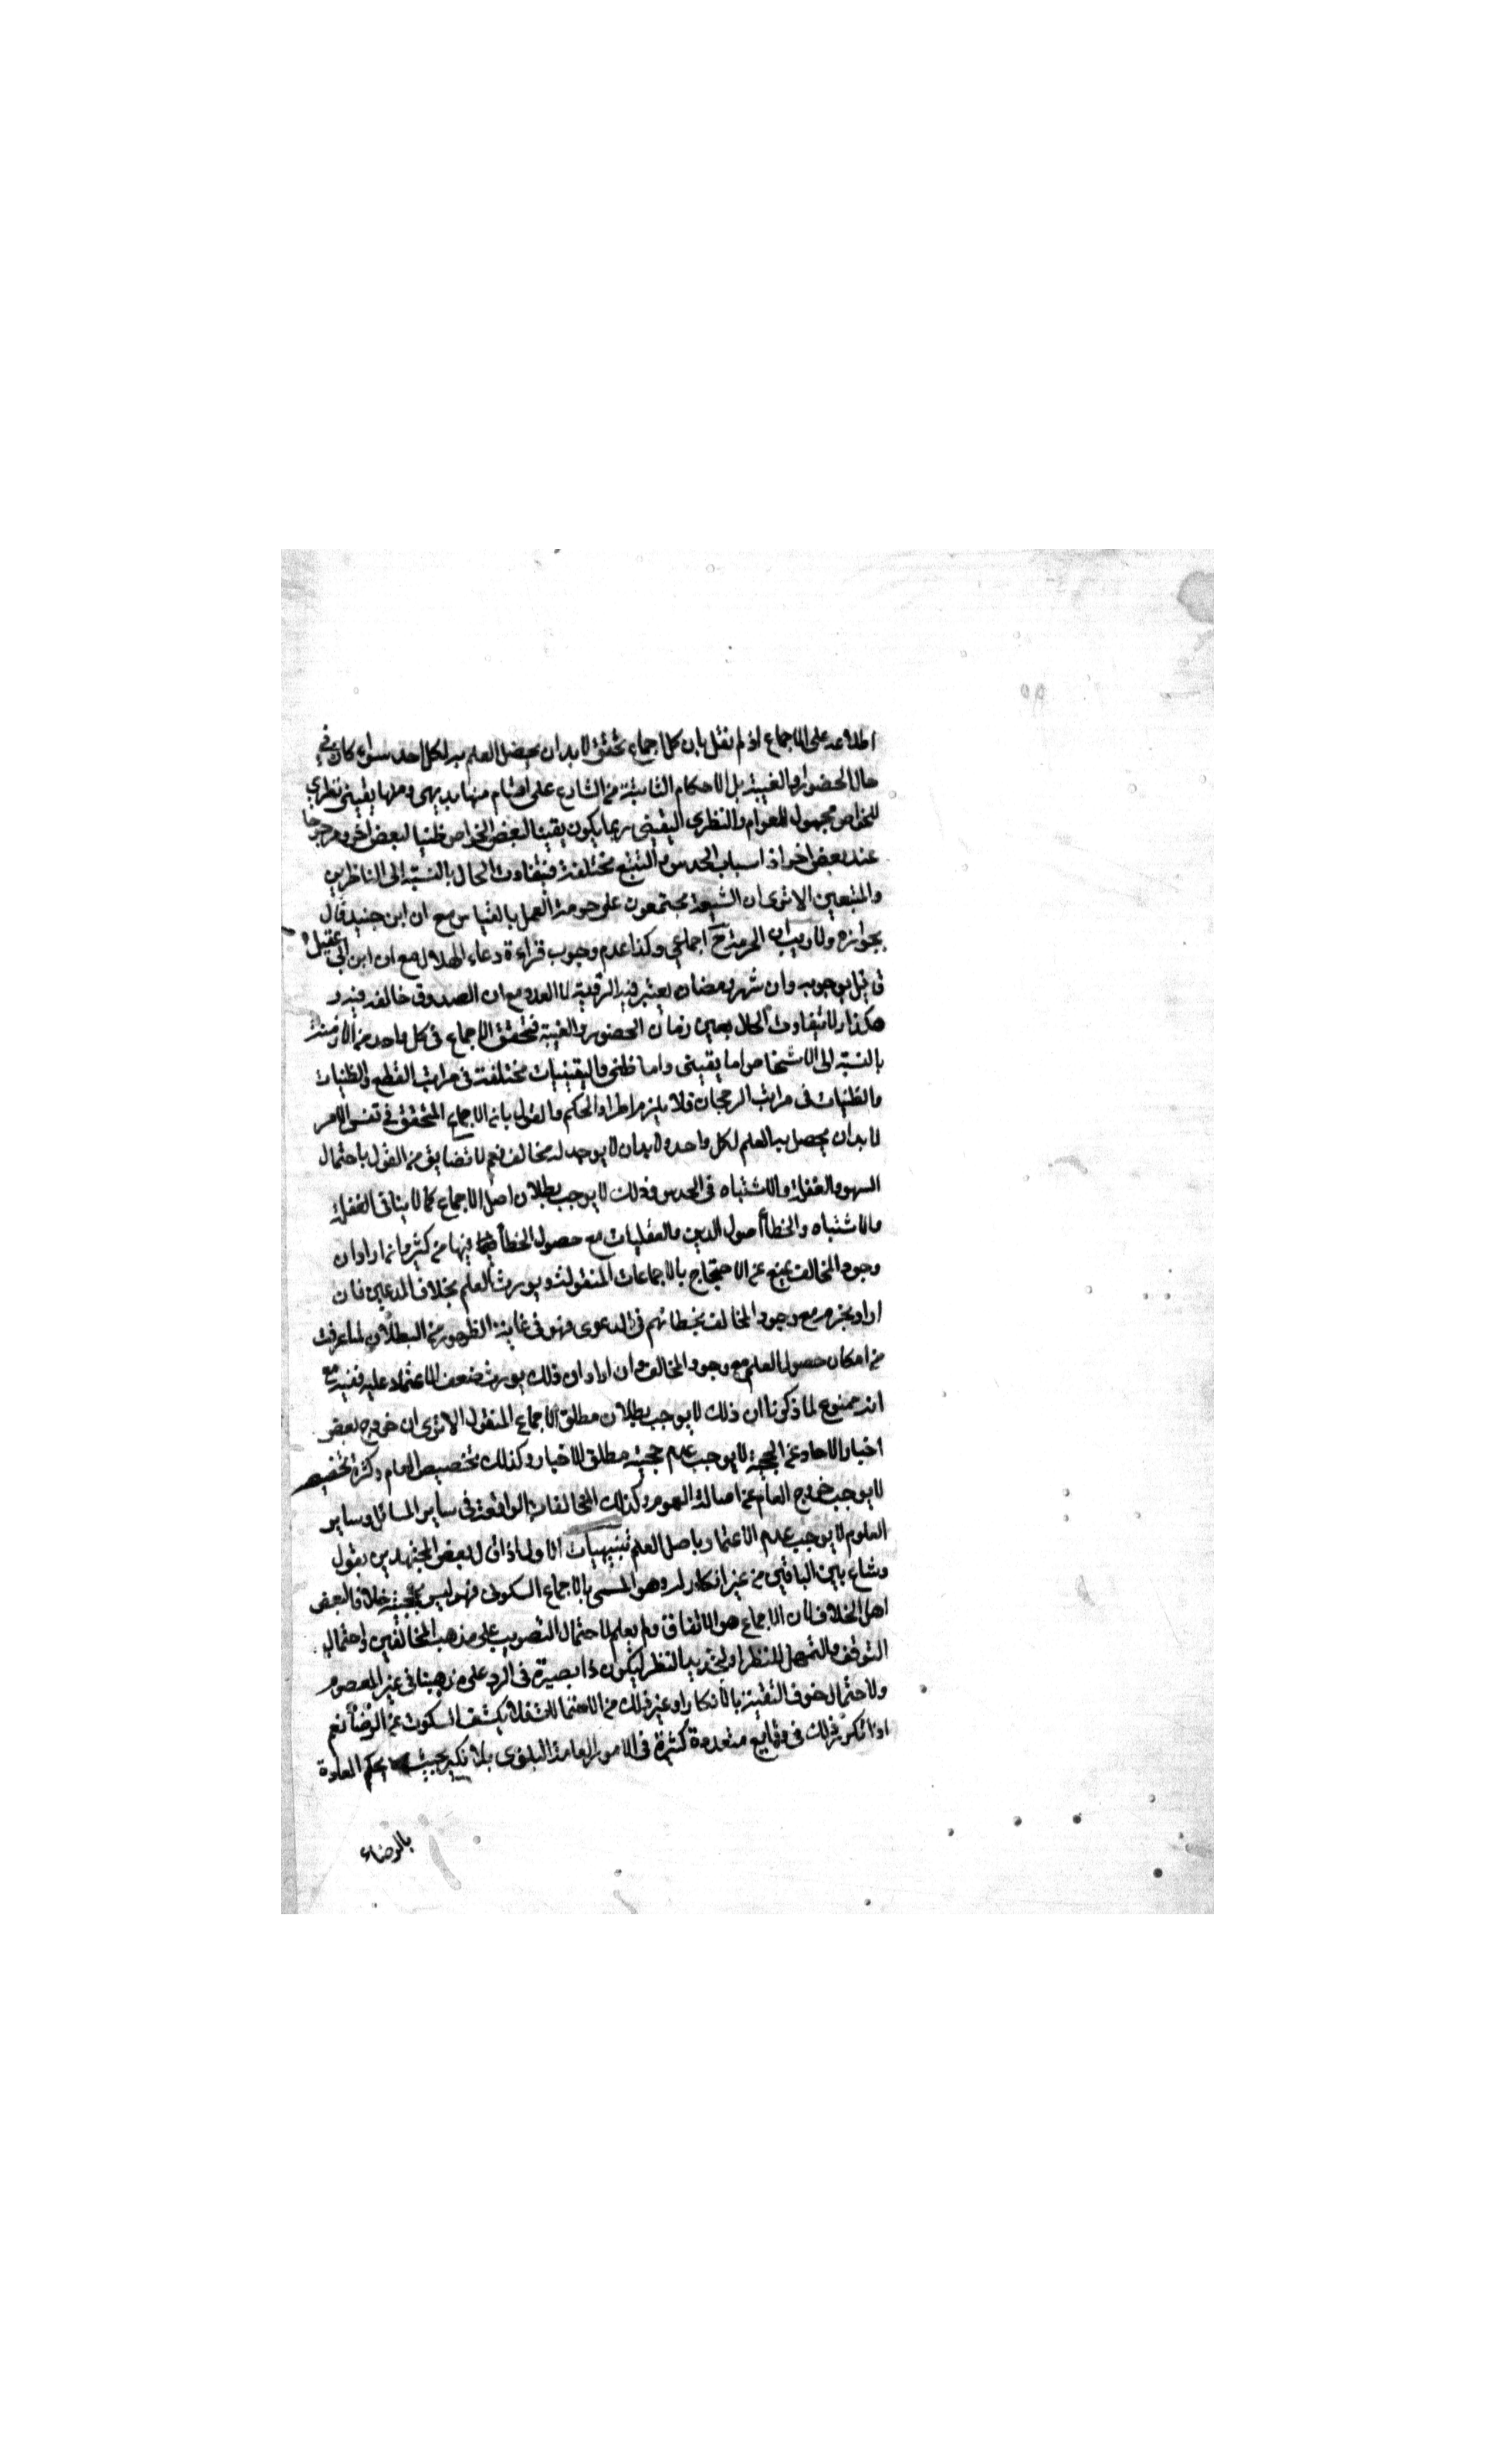 اطلاعه على الاجماع اذ لم نقل بان كل اجماع تحقق لابد ان يحصل العلم به لكل احد سواء كان في
حال الحضور او الغيبة بل الاحكام الثابتة من الشارع على اقسام منها بديهى ومنها يقينى نظرى
للخواص مجهول للعوام والنظرى اليقينى ربما يكون يقينا لبعض الخواص ظنيا لبعض اخر ومرجوحا
عند بعض اخر اذ اسباب الحدس والتتبع مختلفة فيتفاوت الحال بالنسبة الى الناظرين
والمتبعين الا ترى ان الشيعة مجتمعون على حرمة العمل بالقياس مع ان ابن جنيد قال
بجوازه ولا ريب ان الحرمة ح اجماعى وكذا عدم وجوب قراءة دعاء الهلال مع ان ابن ابى عقيل
قائل بوجوبه وان شهر رمضان يعتبر فيه الرؤية لا العدد مع ان الصدوق خالف فيه و
هكذا ولا يتفاوت الحال بعين زمان الحضور والغيبة فتحقق الاجماع فى كل واحد من الازمنة
بالنسبة الى الاشخاص اما يقينى واما ظنى واليقينيات مختلفة فى مراتب القطع والظنيات
والظنيات فى مراتب الرجحان فلا يلزم اطراد الحكم والقول بان الاجماع المتحقق فى نفس الامر
لابد ان يحصل به العلم لكل واحد ولابد ان لا يوجد له مخالف نعم لا نضايق من القول باحتمال
السهو والغفلة والاشتباه فى الحدس وذلك لا يوجب بطلان اصل الاجماع كما لا ينافى الغفلة
والاشتباه والخطأ اصول الدين والعقليات مع حصول الخطأ فيها من كثير وانه اراد ان
وجود المخالف يمنع عن الاحتجاج بالاجماعات المنقولة ويورث العلم بخلاف المدعين فان
اراد يجزم مع وجود المخالف بخطائهم فى الدعوى فهو فى غاية الظهور من البطلان لما عرفت
من امكان حصول العلم مع وجود المخالف وان اراد ان ذلك يورث ضعف الاعتماد عليه ففيه مع
انه ممنوع لما ذكرنا ان ذلك لا يوجب بطلان مطلق الاجماع المنقول الا ترى ان خروج بعض
اخبار الاحاد عن الحجية لا يوجب عدم حجية مطلق الاخبار وكذلك تخصيص العام وكثرة تخصيصه
لا يوجب خروج العام عن اصالة العموم وكذلك المخالفات الواقعة فى ساير المسائل وساير
العلوم لا يوجب عدم الاعتماد باصل العلم تنبيهات الاول اذا قال بعض المجتهدين بقول
وشاع بين الباقين من غير انكار له وهو المسمى بالاجماع السكوتى فهو ليس بحجة خلافا لبعض
اهل الخلاف لان الاجماع هو الاتفاق ولم يعلم لاحتمال التصويب على مذهب المخالفين واحتمال
التوقف والتمهل للنظر او لتجديد النظر ليكون ذا بصيرة فى الرد على مذهبنا فى غير المعصوم
ولاحتمال خوف الفتنة بالانكار او غير ذلك من الاحتمالات فلا يكشف السكوت عن الرضا نعم
اذا تكرر ذلك فى وقايع متعددة كثيرة فى الامور العامة البلوى بلا نكير بحيث يحكم العادة
بالرضاء